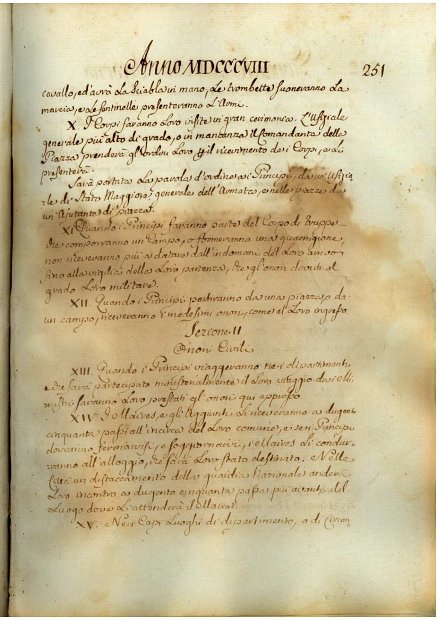 Anno MDCCCVIII 251
cavallo, ed avrà La Sciabla in mano, Le trombette suoneranno La
marcia, e Le sentinelle presenteranno L'Armi.
X. I Corpi faranno Loro visite in gran cerimonia. L'Uffiziale
generale più alto di grado, o in mancanza il Comandante della
Piazza prenderà gl'Ordini Loro il ricevimento dei Corpi, e Li
presenterà.
Sarà portata La parola d'ordine ai Principi, da un Uffizia-
le di Stato Maggiore generale dell'Armata, e nelle piazze da
un Ajutante di piazza.
XI. Quando i Principi faranno parte del Corpo di truppe
che comporranno un Campo, o formeranno una guarnigione,
non riceveranno più a datare dall'indomani del Loro arrivo
fino alla vigilia della Loro partenza, che gl'onori dovuti al
grado Loro militare.
XII. Quando i Principi partiranno da una piazza, o da
un campo, riceveranno i medesimi onori, come al Loro ingresso.
Sezione II
Onori Civili
XIII. Quando i Principi viaggeranno nei dipartimenti,
e che sarà partecipato ministerialmente il Loro viaggio dai Mi-
nistri saranno Loro prestati gl'onori qui appresso
XIV. I Maires, e gli Aggiunti Li riceveranno a dugent
cinquanta passi all'incirca del Loro comune, e se i Principi
dovranno fermarvisi, e soggiornarvi, i Maires Li condur-
ranno all'alloggio, che sarà Loro stato destinato. Nelle
Città un distaccamento della guardia Nazionale anderà
Loro incontro a dugento cinquanta passi più avanti del
Luogo dove Li attenderà il Maire.
XV. Nei Capi Luoghi di dipartimento, o di Circon